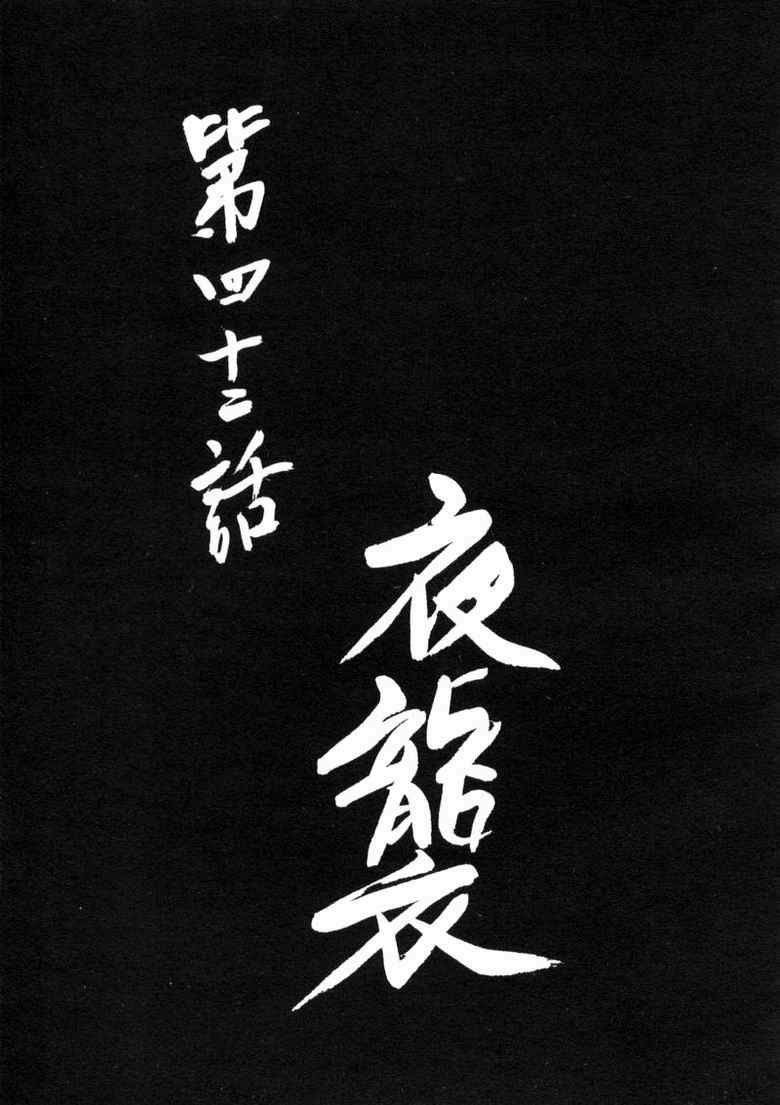 第四十二話
夜襲